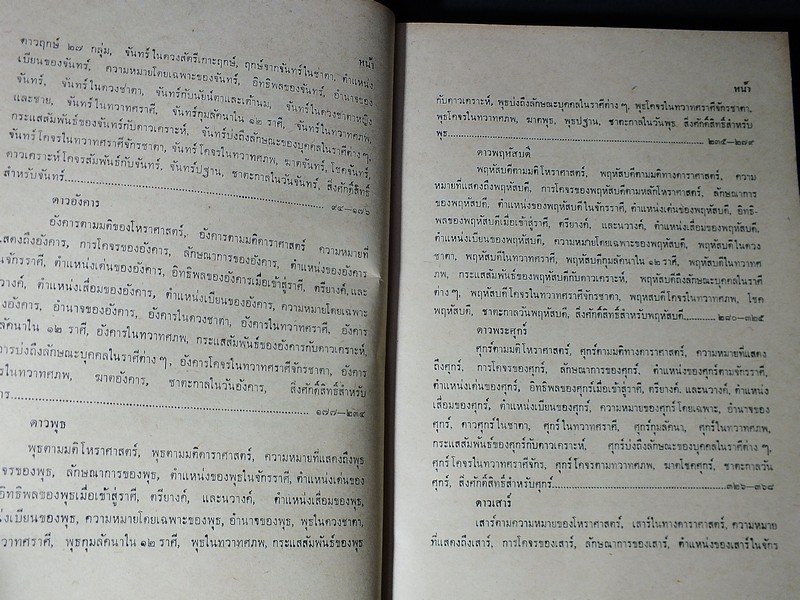 หน้า
ดาวฤกษ์ ๒๗ กลุ่ม, จันทร์ในดวงสัตรีเกาะฤกษ์, ฤกษ์จากจันทร์ในชาตา, ตำแหน่ง
เบียนของจันทร์, ความหมายโดยเฉพาะของจันทร์, อิทธิพลของจันทร์, อำนาจของ
จันทร์, จันทร์ในดวงชาตา, จันทร์กับนัยน์ตาและเต้านม, จันทร์ในดวงชาตาหญิง
และชาย, จันทร์ในทวาทศราศี, จันทร์กุมลัคนาใน ๑๒ ราศี, จันทร์ในทวาทศภพ,
กระแสสัมพันธ์ของจันทร์กับดาวเคราะห์, จันทร์บ่งถึงลักษณะของบุคคลในราศีต่าง ๆ,
จันทร์โคจรในทวาทศราศีจักรชาตา, จันทร์โคจรในทวาทศภพ, ฆาตจันทร์, โชคจันทร์,
ดาวเคราะห์โคจรสัมพันธ์กับจันทร์, จันทร์ปฐาน, ชาตะกาลในวันจันทร์, สิ่งศักดิ์สิทธิ์
สำหรับจันทร์ ๙๔—๑๗๖
ดาวอังคาร
อังคารตามมติของโหราศาสตร์, อังคารตามมติดาราศาสตร์ ความหมายที่
แสดงถึงอังคาร, การโคจรของอังคาร, ลักษณาการของอังคาร, ตำแหน่งของอังคาร
ในจักรราศี, ตำแหน่งเด่นของอังคาร, อิทธิพลของอังคารเมื่อเข้าสู่ราศี, ตรียางค์, และ
วางค์, ตำแหน่งเสื่อมของอังคาร, ตำแหน่งเบียนของอังคาร, ความหมายโดยเฉพาะ
องอังคาร, อำนาจของอังคาร, อังคารในดวงชาตา, อังคารในทวาทศราศี, อังคาร
ลัคนาใน ๑๒ ราศี, อังคารในทวาทศภพ, กระแสสัมพันธ์ของอังคารกับดาวเคราะห์,
การบ่งถึงลักษณะบุคคลในราศีต่าง ๆ, อังคารโคจรในทวาทศราศีจักรชาตา, อังคาร
รในทวาทศภพ, ฆาตอังคาร, ชาตะกาลในวันอังคาร, สิ่งศักดิ์สิทธิ์สำหรับ
าร ๑๗๗—๒๓๔
ดาวพุธ
พุธตามมติโหราศาสตร์, พุธตามมติดาราศาสตร์, ความหมายที่แสดงถึงพุธ
จรของพุธ, ลักษณาการของพุธ, ตำแหน่งของพุธในจักรราศี, ตำแหน่งเด่นของ
อิทธิพลของพุธเมื่อเข้าสู่ราศี, ตรียางค์, และนวางค์, ตำแหน่งเสื่อมของพุธ,
น่งเบียนของพุธ, ความหมายโดยเฉพาะของพุธ, อำนาจของพุธ, พุธในดวงชาตา,
วาทศราศี, พุธกุมลัคนาใน ๑๒ ราศี, พุธในทวาทศภพ, กระแสสัมพันธ์ของพุธ
หน้า
กับดาวเคราะห์, พุธบ่งถึงลักษณะบุคคลในราศีต่าง ๆ, พุธโคจรในทวาทศราศีจักรชาตา,
พุธโคจรในทวาทศภพ, ฆาตพุธ, พุธปฐาน, ชาตะกาลในวันพุธ, สิ่งศักดิ์สิทธิ์สำหรับ
พุธ ๒๓๕—๒๗๙
ดาวพฤหัสบดี
พฤหัสบดีตามมติโหราศาสตร์, พฤหัสบดีตามมติทางดาราศาสตร์, ความ
หมายที่แสดงถึงพฤหัสบดี, การโคจรของพฤหัสบดีตามหลักโหราศาสตร์, ลักษณาการ
ของพฤหัสบดี, ตำแหน่งของพฤหัสบดีในจักรราศี, ตำแหน่งเด่นของพฤหัสบดี, อิทธิ-
พลของพฤหัสบดีเมื่อเข้าสู่ราศี, ตรียางค์, และนวางค์, ตำแหน่งเสื่อมของพฤหัสบดี,
ตำแหน่งเบียนของพฤหัสบดี, ความหมายโดยเฉพาะของพฤหัสบดี, พฤหัสบดีในดวง
ชาตา, พฤหัสบดีในทวาทศราศี, พฤหัสบดีกุมลัคนาใน ๑๒ ราศี, พฤหัสบดีในทวาทศ
ภพ, กระแสสัมพันธ์ของพฤหัสบดีกับดาวเคราะห์, พฤหัสบดีบ่งถึงลักษณะบุคคลในราศี
ต่าง ๆ, พฤหัสบดีโคจรในทวาทศราศีจักรชาตา, พฤหัสบดีโคจรในทวาทศภพ, โชค
พฤหัสบดี, ชาตะกาลในวันพฤหัสบดี, สิ่งศักดิ์สิทธิ์สำหรับพฤหัสบดี ๒๘๐—๓๒๕
ดาวพระศุกร์
ศุกร์ตามมติโหราศาสตร์, ศุกร์ตามมติทางดาราศาสตร์, ความหมายที่แสดง
ถึงศุกร์, การโคจรของศุกร์, ลักษณาการของศุกร์, ตำแหน่งของศุกร์ตามจักรราศี,
ตำแหน่งเด่นของศุกร์, อิทธิพลของศุกร์เมื่อเข้าสู่ราศี, ตรียางค์, และนวางค์, ตำแหน่ง
เสื่อมของศุกร์, ตำแหน่งเบียนของศุกร์, ความหมายของศุกร์โดยเฉพาะ, อำนาจของ
ศุกร์, ดาวศุกร์ในชาตา, ศุกร์ในทวาทศราศี, ศุกร์กุมลัคนา, ศุกร์ในทวาทศภพ,
กระแสสัมพันธ์ของศุกร์กับดาวเคราะห์, ศุกร์บ่งถึงลักษณะของบุคคลในราศีต่าง ๆ,
ศุกร์โคจรในทวาทศราศีจักร, ศุกร์โคจรตามทวาทศภพ, ฆาตโชคศุกร์, ชาตะกาลวัน
ศุกร์, สิ่งศักดิ์สิทธิ์สำหรับศุกร์ ๓๒๖—๓๖๘
ดาวเสาร์
เสาร์ตามความหมายของโหราศาสตร์, เสาร์ในทางดาราศาสตร์, ความหมาย
ที่แสดงถึงเสาร์, การโคจรของเสาร์, ลักษณาการของเสาร์, ตำแหน่งของเสาร์ในจักร